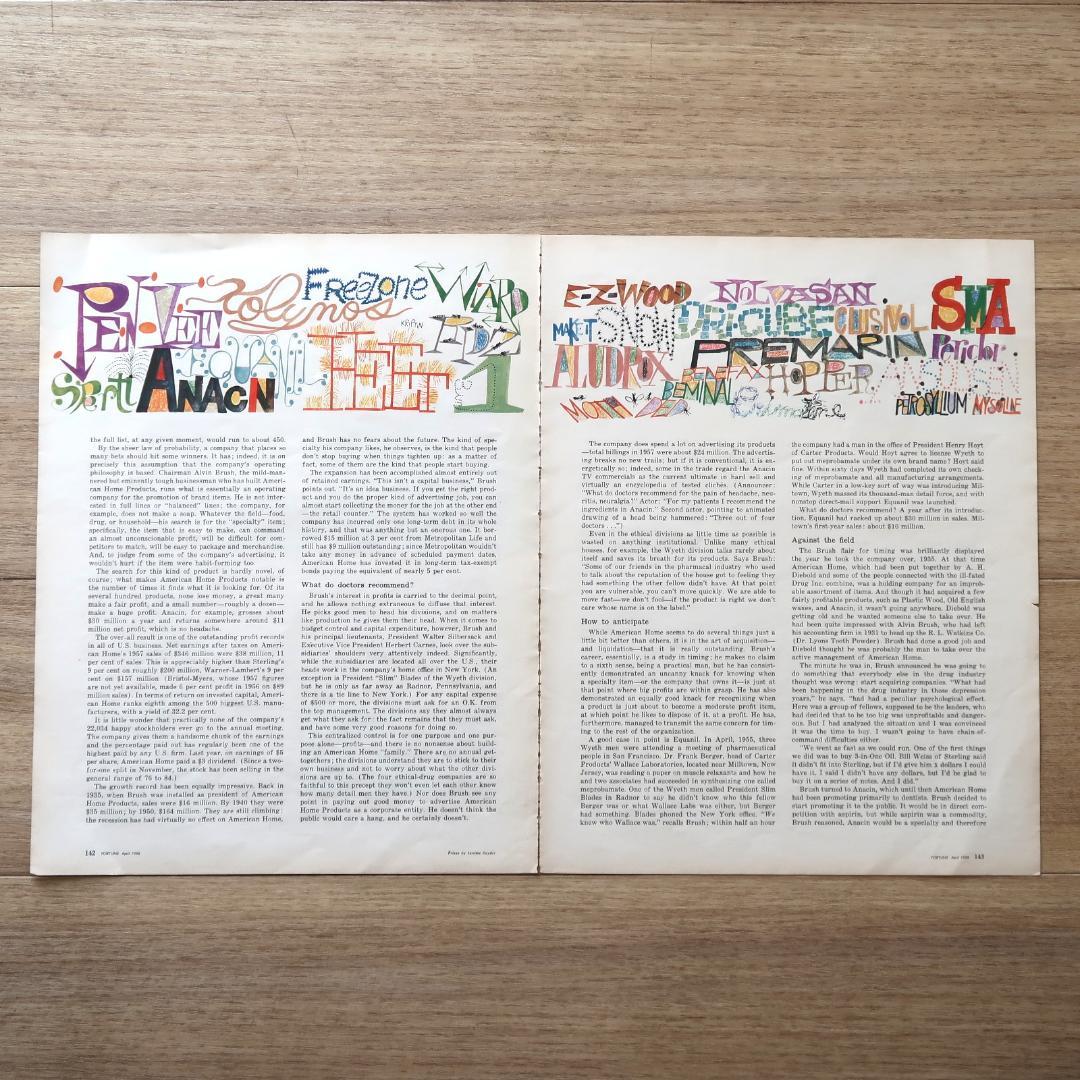 PEN·VEE
Kolynos
FREEZONE
WIZARD
KRIPTIN
EQUANIL
HEET
APZ
SPERTI
ANACIN
3 in 1
E-Z-WOOD
NOLVASAN
SMA
MAKE IT
SNOW
DRI-CUBE
CLUSIVOL
PREMARIN
Peridor
ALUDROX
HOPPER
BEMINAL
PETROSYLLIUM
MYSOLINE
the full list, at any given moment, would run to about 450.
By the sheer law of probability, a company that places so
many bets should hit some winners. It has; indeed, it is on
precisely this assumption that the company's operating
philosophy is based. Chairman Alvin Brush, the mild-man-
nered but eminently tough businessman who has built Ameri-
can Home Products, runs what is essentially an operating
company for the promotion of brand items. He is not inter-
ested in full lines or "balanced" lines; the company, for
example, does not make a soap. Whatever the field—food,
drug, or household—his search is for the "specialty" item;
specifically, the item that is easy to make, can command
an almost unconscionable profit, will be difficult for com-
petitors to match, will be easy to package and merchandise.
And, to judge from some of the company's advertising, it
wouldn't hurt if the item were habit-forming too.
The search for this kind of product is hardly novel, of
course; what makes American Home Products notable is
the number of times it finds what it is looking for. Of its
several hundred products, none lose money, a great many
make a fair profit, and a small number—roughly a dozen—
make a huge profit. Anacin, for example, grosses about
$30 million a year and returns somewhere around $11
million net profit, which is no headache.
The over-all result is one of the outstanding profit records
in all of U.S. business. Net earnings after taxes on Ameri-
can Home's 1957 sales of $346 million were $38 million, 11
per cent of sales. This is appreciably higher than Sterling's
9 per cent on roughly $200 million, Warner-Lambert's 9 per
cent on $157 million (Bristol-Myers, whose 1957 figures
are not yet available, made 6 per cent in 1956 on $89
million sales). In terms of return on invested capital, Ameri-
can Home ranks eighth among the 500 biggest U.S. manu-
facturers, with a yield of 32.2 per cent.
It is little wonder that practically none of the company's
22,034 happy stockholders ever go to the annual meeting.
The company gives them a handsome chunk of the earnings
and the percentage paid out has regularly been one of the
highest paid by any U.S. firm. Last year, on earnings of $5
per share, American Home paid a $3 dividend. (Since a two-
for-one split in November, the stock has been selling in the
general range of 76 to 84.)
The growth record has been equally impressive. Back in
1935, when Brush was installed as president of American
Home Products, sales were $16 million. By 1940 they were
$35 million; by 1950, $164 million. They are still climbing—
the recession has had virtually no effect on American Home,
and Brush has no fears about the future. The kind of spe-
cialty his company likes, he observes, is the kind that people
don't stop buying when things tighten up: as a matter of
fact, some of them are the kind that people start buying.
The expansion has been accomplished almost entirely out
of retained earnings. "This isn't a capital business," Brush
points out. "It's an idea business. If you get the right prod-
uct and you do the proper kind of advertising job, you can
almost start collecting the money for the job at the other end
—the retail counter." The system has worked so well the
company has incurred only one long-term debt in its whole
history, and that was anything but an onerous one. It bor-
rowed $15 million at 3 per cent from Metropolitan Life and
still has $9 million outstanding; since Metropolitan wouldn't
take any money in advance of scheduled payment dates,
American Home has invested it in long-term tax-exempt
bonds paying the equivalent of nearly 5 per cent.
What do doctors recommend?
Brush's interest in profits is carried to the decimal point,
and he allows nothing extraneous to diffuse that interest.
He picks good men to head his divisions, and on matters
like production he gives them their head. When it comes to
budget control and capital expenditure, however, Brush and
his principal lieutenants, President Walter Silbersack and
Executive Vice President Herbert Carnes, look over the sub-
sidiaries' shoulders very attentively indeed. Significantly,
while the subsidiaries are located all over the U.S., their
heads work in the company's home office in New York. (An
exception is President "Slim" Blades of the Wyeth division,
but he is only as far away as Radnor, Pennsylvania, and
there is a tie line to New York.) For any capital expense
of $500 or more, the divisions must ask for an O.K. from
the top management. The divisions say they almost always
get what they ask for; the fact remains that they must ask,
and have some very good reasons for doing so.
This centralized control is for one purpose and one pur-
pose alone—profits—and there is no nonsense about build-
ing an American Home "family." There are no annual get-
togethers; the divisions understand they are to stick to their
own business and not to worry about what the other divi-
sions are up to. (The four ethical-drug companies are so
faithful to this precept they won't even let each other know
how many detail men they have.) Nor does Brush see any
point in paying out good money to advertise American
Home Products as a corporate entity. He doesn't think the
public would care a hang, and he certainly doesn't.
142 FORTUNE April 1958
The company does spend a lot on advertising its products
—total billings in 1957 were about $24 million. The advertis-
ing breaks no new trails; but if it is conventional, it is en-
ergetically so; indeed, some in the trade regard the Anacin
TV commercials as the current ultimate in hard sell and
virtually an encyclopedia of tested clichés. (Announcer:
"What do doctors recommend for the pain of headache, neu-
ritis, neuralgia?" Actor: "For my patients I recommend the
ingredients in Anacin." Second actor, pointing to animated
drawing of a head being hammered: "Three out of four
doctors . . .")
Even in the ethical divisions as little time as possible is
wasted on anything institutional. Unlike many ethical
houses, for example, the Wyeth division talks rarely about
itself and saves its breath for its products. Says Brush:
"Some of our friends in the pharmacal industry who used
to talk about the reputation of the house got to feeling they
had something the other fellow didn't have. At that point
you are vulnerable, you can't move quickly. We are able to
move fast—we don't fool—if the product is right we don't
care whose name is on the label."
How to anticipate
While American Home seems to do several things just a
little bit better than others, it is in the art of acquisition—
and liquidation—that it is really outstanding. Brush's
career, essentially, is a study in timing; he makes no claim
to a sixth sense, being a practical man, but he has consist-
ently demonstrated an uncanny knack for knowing when
a specialty item—or the company that owns it—is just at
that point where big profits are within grasp. He has also
demonstrated an equally good knack for recognizing when
a product is just about to become a moderate profit item,
at which point he likes to dispose of it, at a profit. He has,
furthermore, managed to transmit the same concern for tim-
ing to the rest of the organization.
A good case in point is Equanil. In April, 1955, three
Wyeth men were attending a meeting of pharmaceutical
people in San Francisco. Dr. Frank Berger, head of Carter
Products' Wallace Laboratories, located near Milltown, New
Jersey, was reading a paper on muscle relaxants and how he
and two associates had succeeded in synthesizing one called
meprobamate. One of the Wyeth men called President Slim
Blades in Radnor to say he didn't know who this fellow
Berger was or what Wallace Labs was either, but Berger
had something. Blades phoned the New York office. "We
knew who Wallace was," recalls Brush; within half an hour
the company had a man in the office of President Henry Hoyt
of Carter Products. Would Hoyt agree to license Wyeth to
put out meprobamate under its own brand name? Hoyt said
fine. Within sixty days Wyeth had completed its own check-
ing of meprobamate and all manufacturing arrangements.
While Carter in a low-key sort of way was introducing Mil-
town, Wyeth massed its thousand-man detail force, and with
nonstop direct-mail support Equanil was launched.
What do doctors recommend? A year after its introduc-
tion, Equanil had racked up about $30 million in sales. Mil-
town's first-year sales: about $10 million.
Against the field
The Brush flair for timing was brilliantly displayed
the year he took the company over, 1935. At that time
American Home, which had been put together by A. H.
Diebold and some of the people connected with the ill-fated
Drug Inc. combine, was a holding company for an improb-
able assortment of items. And though it had acquired a few
fairly profitable products, such as Plastic Wood, Old English
waxes, and Anacin, it wasn't going anywhere. Diebold was
getting old and he wanted someone else to take over. He
had been quite impressed with Alvin Brush, who had left
his accounting firm in 1931 to head up the R. L. Watkins Co.
(Dr. Lyons Tooth Powder). Brush had done a good job and
Diebold thought he was probably the man to take over the
active management of American Home.
The minute he was in, Brush announced he was going to
do something that everybody else in the drug industry
thought was wrong: start acquiring companies. "What had
been happening in the drug industry in those depression
years," he says, "had had a peculiar psychological effect.
Here was a group of fellows, supposed to be the leaders, who
had decided that to be too big was unprofitable and danger-
ous. But I had analyzed the situation and I was convinced
it was the time to buy. I wasn't going to have chain-of-
command difficulties either.
"We went as fast as we could run. One of the first things
we did was to buy 3-in-One Oil. Bill Weiss of Sterling said
it didn't fit into Sterling, but if I'd give him x dollars I could
have it. I said I didn't have any dollars, but I'd be glad to
buy it on a series of notes. And I did."
Brush turned to Anacin, which until then American Home
had been promoting primarily to dentists. Brush decided to
start promoting it to the public. It would be in direct com-
petition with aspirin, but while aspirin was a commodity,
Brush reasoned, Anacin would be a specialty and therefore
FORTUNE April 1958 143